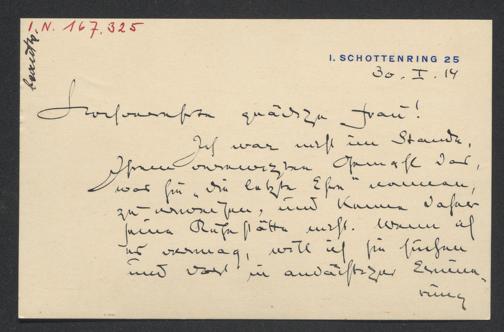 I. N. 167.325
I. SCHOTTENRING 25
30. I. 14
gnädige Frau!
Ich war nicht im Stande,
Ihrem Gemahl das,
was Sie „die letzte Ehre" nennen,
zu erweisen, und kenne daher
seine Ruhestätte nicht. Wenn ich
es vermag, will ich sie suchen
und dort in andächtiger Erinne-
rung